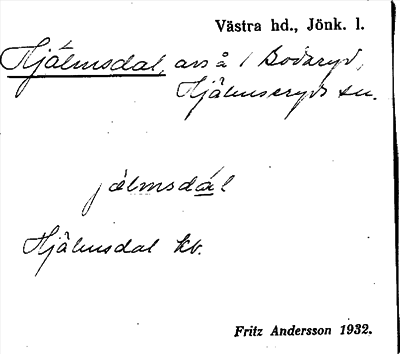 Västra hd., Jönk. l.
Hjälmsdal, avs å 1 Bodaryd,
Hjälmseryds sn.
jälmsdál
Hjälmsdal kb.
Fritz Andersson 1932.